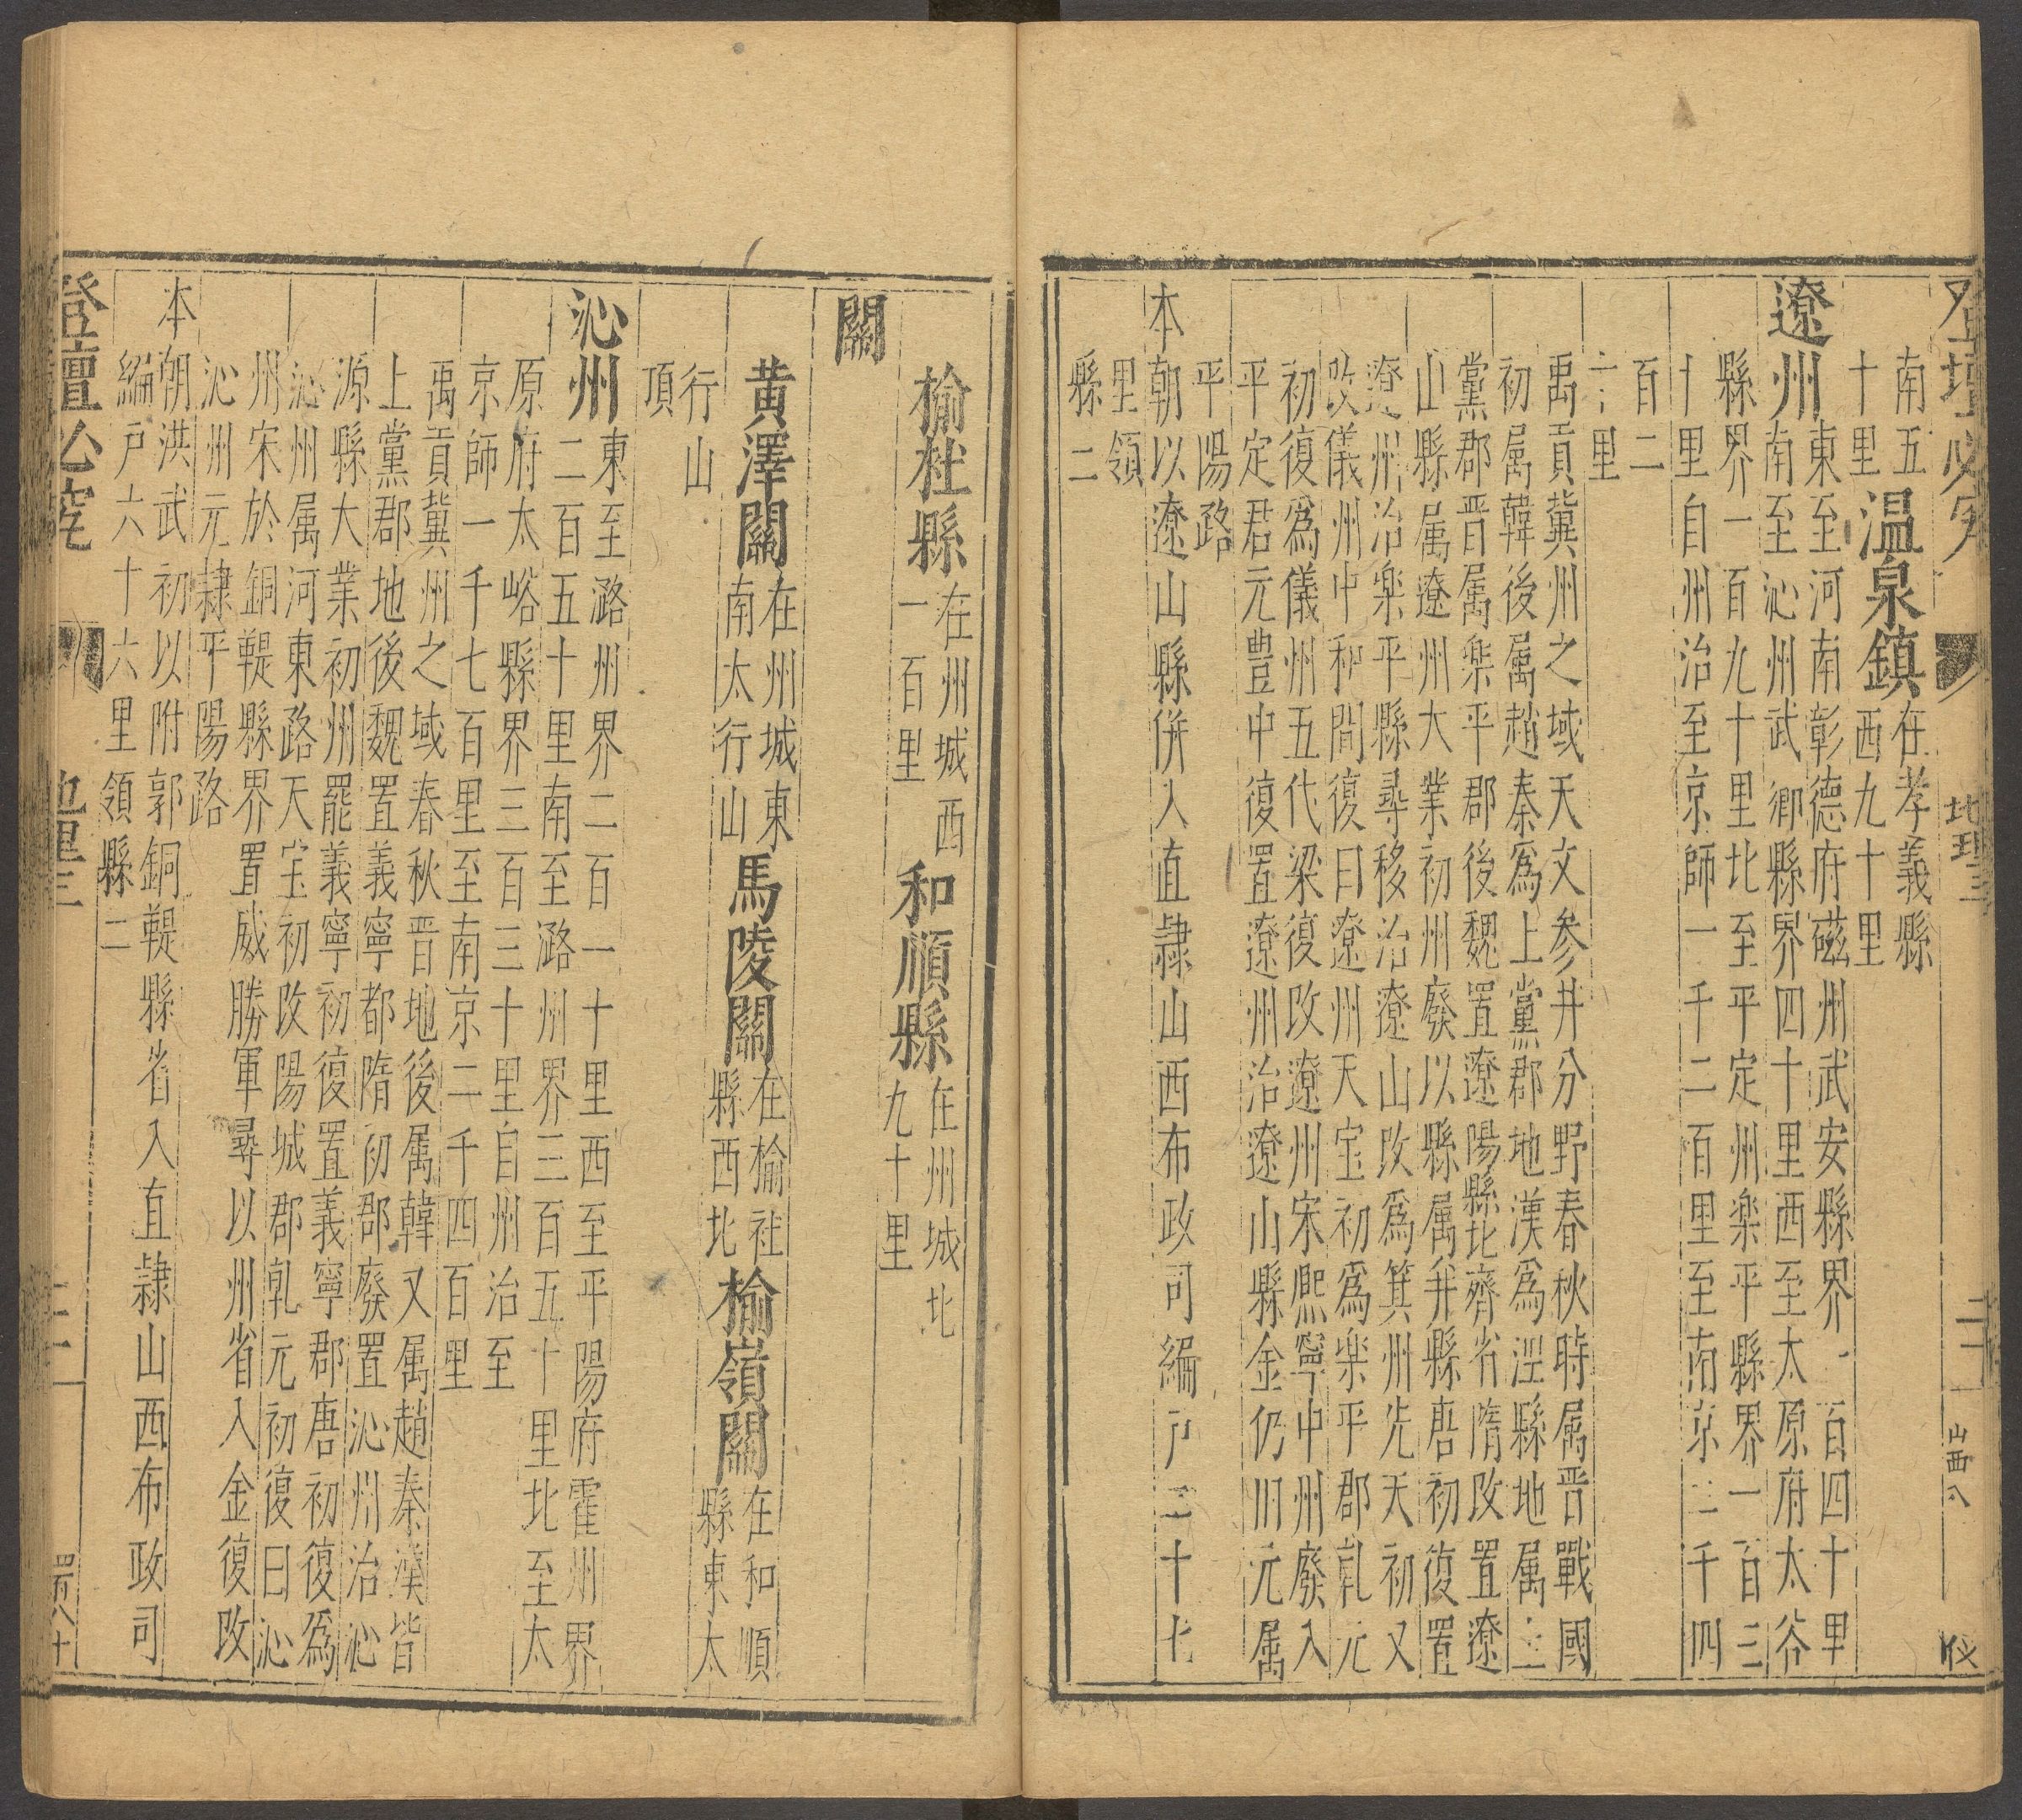 登壇必究 地理三 山西八
南五
十里温泉鎮在孝義縣
西九十里
遼州東至河南彰德府磁州武安縣界一百四十里
南至沁州武鄉縣界四十里西至太原府太谷
縣界一百九十里北至平定州楽平縣界一百三
十里自州治至京師一千二百里至南京二千四
百二
十里
禹貢冀州之域天文参井分野春秋時属晋戰國
初属韓後属趙秦爲上黨郡地漢爲涅縣地属上
黨郡晋属楽平郡後魏置遼陽縣北齊省隋改置遼
山縣属遼州大業初州廢以縣属并縣唐初復置
遼州治楽平縣尋移治遼山改爲箕州先天初又
改儀州中和間復曰遼州天宝初爲楽平郡乹元
初復爲儀州五代梁復改遼州宋熈寧中州廢入
平定君元豊中復置遼州治遼山縣金仍旧元属
平陽路
本朝以遼山縣併入直隷山西布政司編户二十七
里領
縣二
榆社縣在州城西
一百里和順縣在州城北
九十里
關
黄澤關在州城東
南太行山馬陵關在榆社
縣西北榆嶺關在和順
縣東太
行山
頂
沁州東至潞州界二百一十里西至平陽府霍州界
二百五十里南至潞州界三百五十里北至太
原府太峪縣界三百三十里自州治至
京師一千七百里至南京二千四百里
禹貢冀州之域春秋晋地後属韓又属趙秦漢皆
上黨郡地後魏置義寧都隋初郡廢置沁州治沁
源縣大業初州罷義寧初復置義寧郡唐初復爲
沁州属河東路天宝初改陽城郡乹元初復曰沁
州宋於銅鞮縣界置威勝軍尋以州省入金復改
沁州元隷平陽路
本朝洪武初以附郭銅鞮縣省入直隷山西布政司
編户六十六里領縣二
登壇必究 地理三